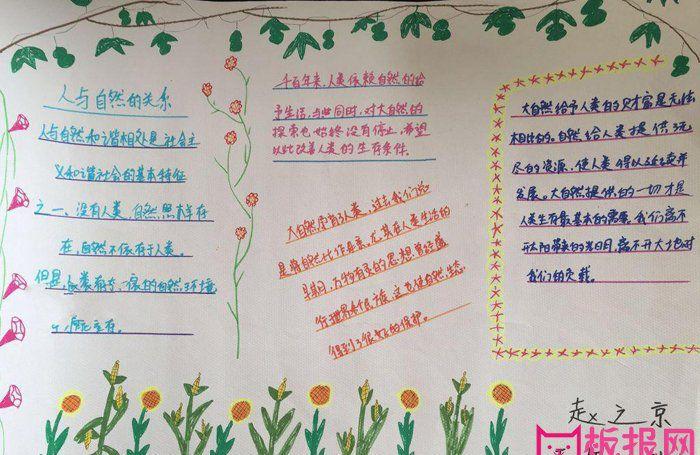 人与自然的关系
人与自然和谐相处是社会主
义和谐社会的基本特征
之一、没有人类,自然照样存
在,自然不依存于人类。
但是,人类存在一定的自然环境
中,
千百年来,人类依赖自然的给
予生活,与此同时,对大自然的
探索也始终没有停止,希望
以此改善人类的生存条件.
大自然孕育了人类,过去我们总
是将自然比作母亲,尤其在人类生活的
早期,万物有灵的思想曾经盛
行世界各民族,这也使自然生态
得到了很好的保护。
大自然给予人类的财富是无法
相比的。自然给人类提供了无
尽的资源,使人类得以延续并
发展。大自然提供的一切才是
人类生存最基本的需要,我们离不
开太阳带来的光明,离不开大地对
我们的负载。
赵之京
板报网